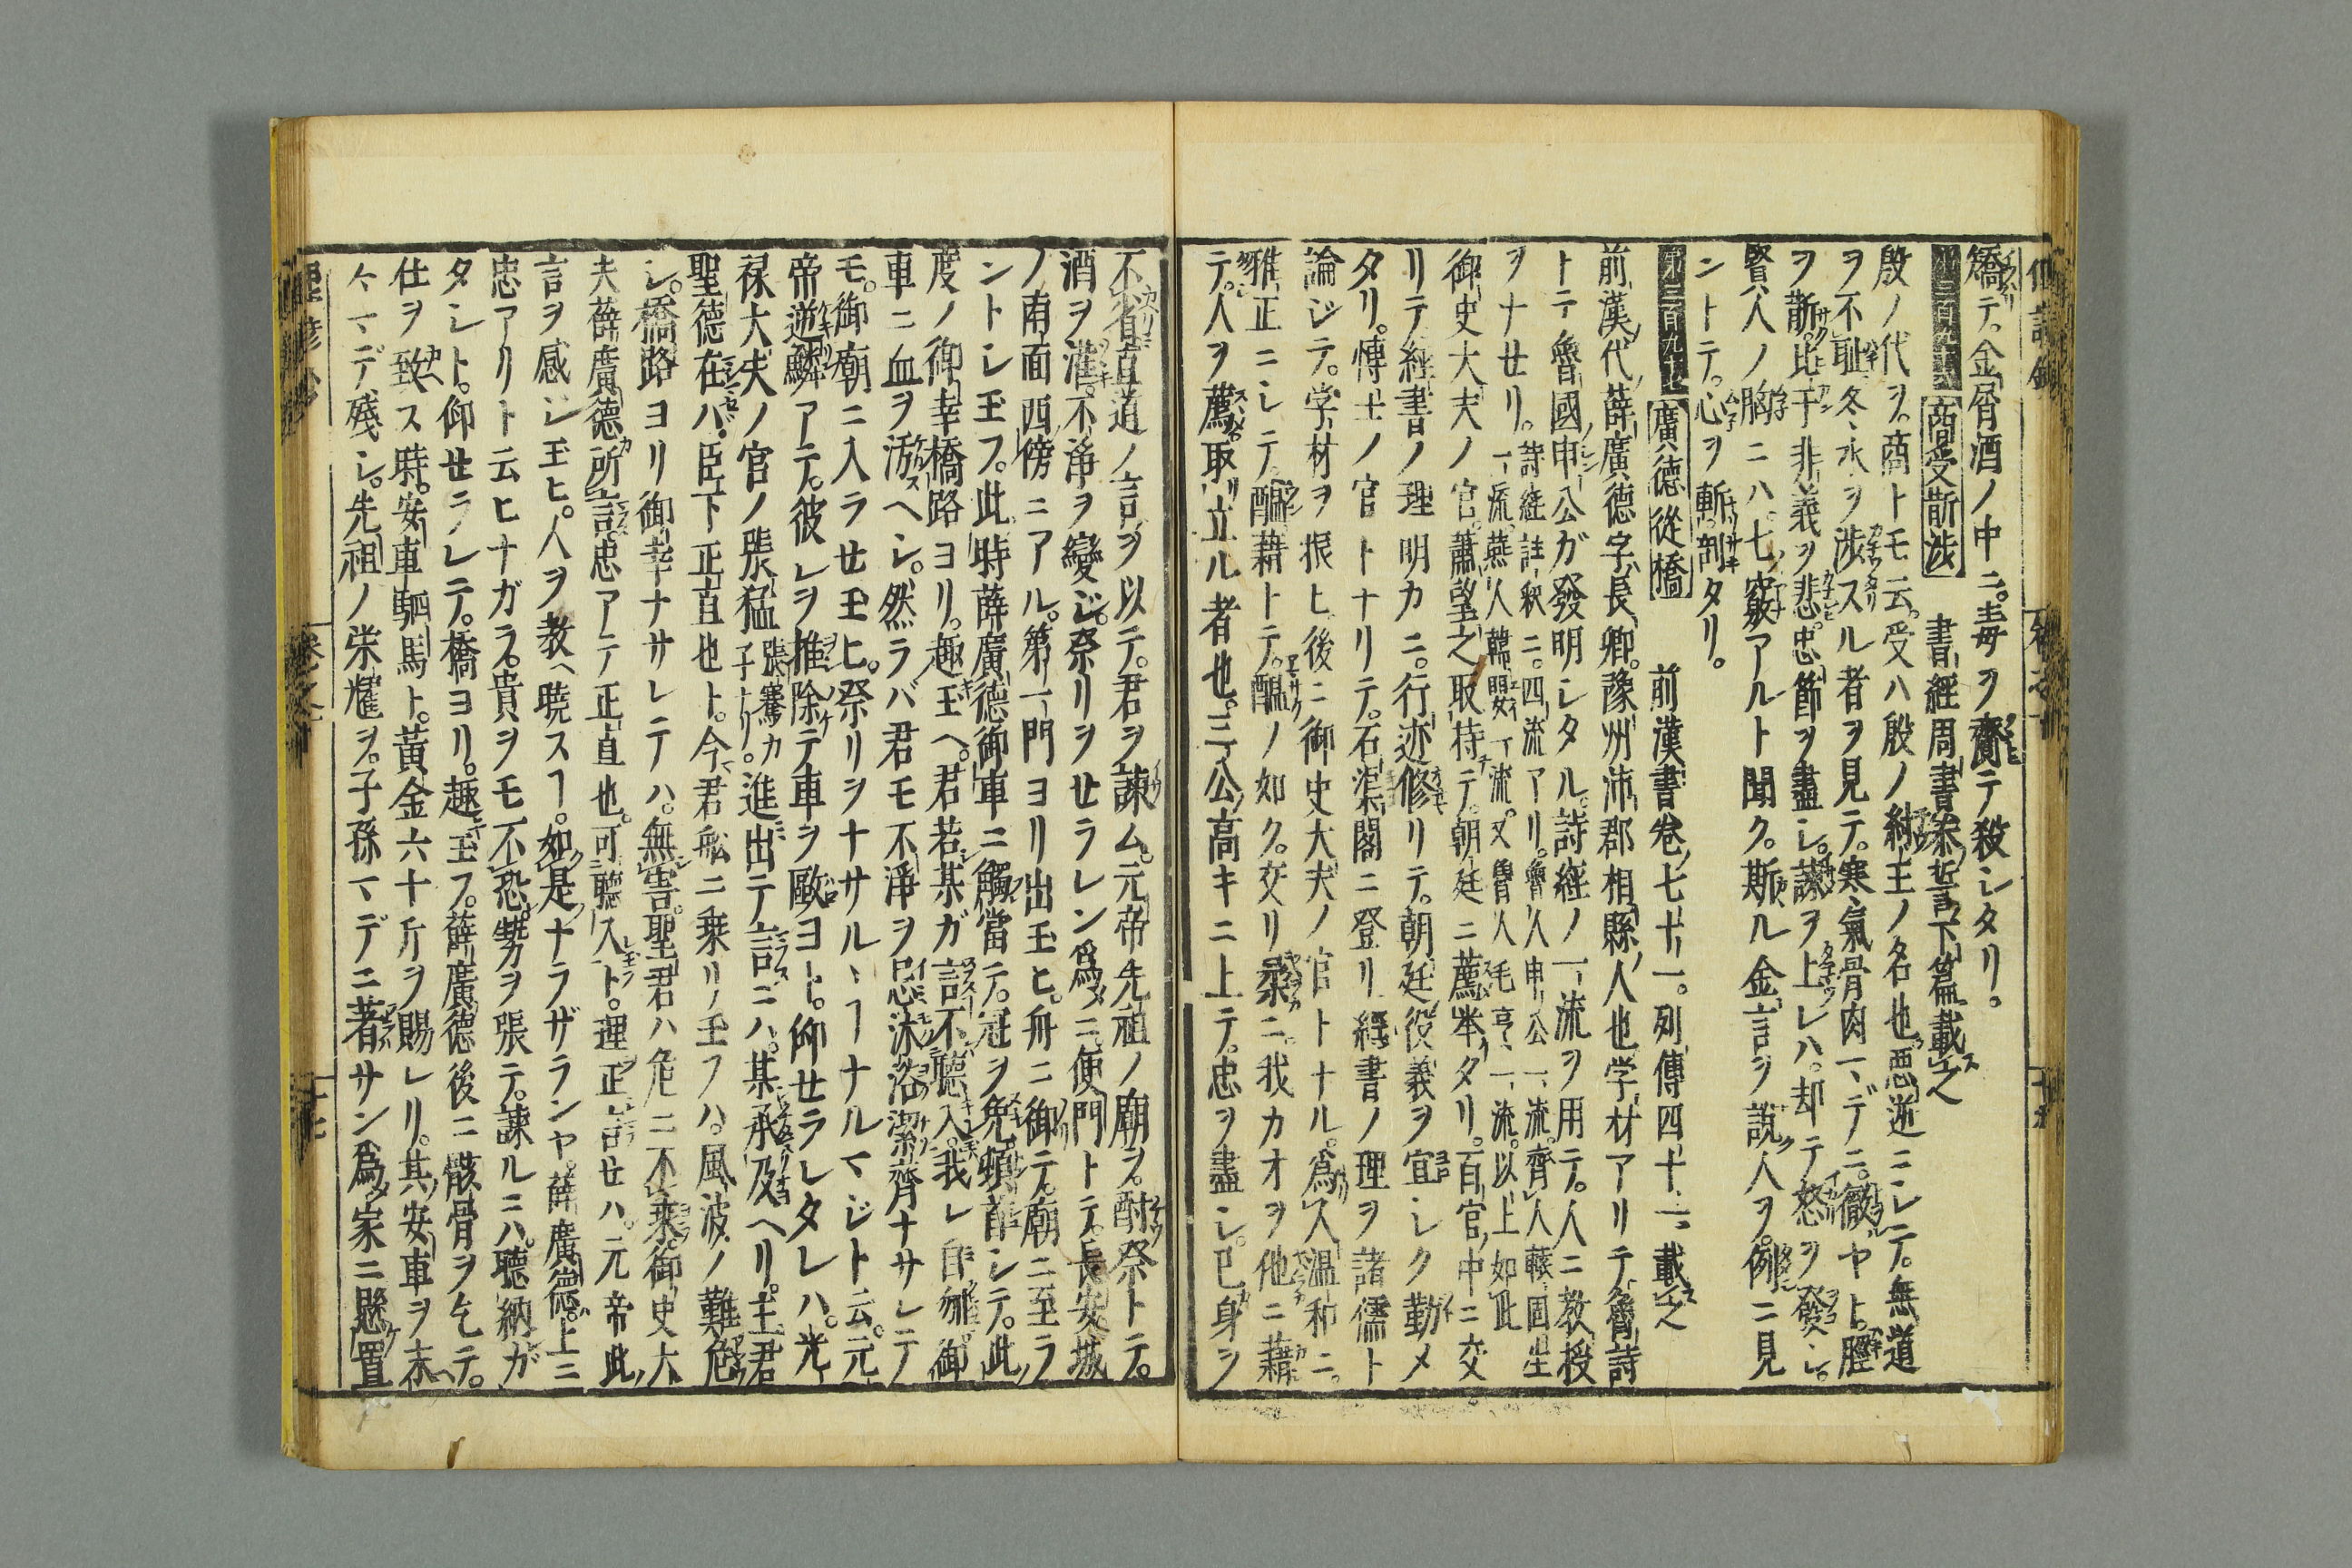 矯テ。金屑酒ノ中ニ。毒ヲ齎テ殺シタリ。
商受斮涉 書經周書泰誓下篇載之
殷ノ代ヲ。商トモ云。受ハ殷ノ紂王ノ名也。悪逆ニシテ。無道
ヲ不耻。冬氷ヲ渉スル者ヲ見テ。寒氣骨肉マデニ。徹ヤト。脛
ヲ斮。比干非義ヲ悲。忠節ヲ盡シ。諫ヲ上レハ。却テ怒ヲ發シ。
賢人ノ胸ニハ。七竅アルト聞ク。斯ル金言ヲ説人ヲ。例ニ見
ントテ。心ヲ斬剖タリ。
廣德從橋 前漢書巻七十一。列傳四十一載之
前漢ノ代薛廣德字長卿。豫州沛郡相縣人也学材アリテ。魯詩
トテ魯國申公ガ發明シタル。詩經ノ一流ヲ用テ。人ニ教授
ヲナセリ。詩経註釈ニ。四流アリ。魯人申公一流。齊人轅固生
一流。燕人韓嬰一流。又魯人毛亨一流。以上如此
御史大夫ノ官。蕭望之取持テ。朝廷ニ薦挙タリ。百官中ニ交
リテ經書ノ理明カニ。行迹修リテ。朝廷役義ヲ宜シク勤メ
タリ。博士ノ官トナリテ。石渠閣ニ登リ經書ノ理ヲ諸儒ト
論ジテ。学材ヲ振ヒ後ニ御史大夫ノ官トナル。爲人温和ニ。
雅正ニシテ。醞藉トテ。醞ノ如ク。交リ柔ニ。我カオヲ他ニ藉
テ。人ヲ薦取立ル者也。三公高キニ上テ。忠ヲ盡シ。已身ヲ
不省直道ノ言ヲ以テ。君ヲ諫ム。元帝先祖ノ廟ヲ。酎祭トテ。
酒ヲ灌。不浄ヲ變ジ。祭リヲセラレン爲メニ。便門トテ。長安城
ノ南面西傍ニアル。第一門ヨリ出玉ヒ。舟ニ御テ。廟ニ至ラ
ントシ玉フ。此時薛廣德御車ニ觸當テ。冠ヲ免。頓首シテ。此
度ノ御幸橋路ヨリ。趣玉ヘ。君若某ガ言不聽入。我レ自刎。御
車ニ血ヲ汚ヘシ。然ラバ君モ不淨ヲ忌沐浴潔齊ナサレテ
モ。御廟ニ入ラセ玉ヒ。祭リヲナサルヽヿナルマジト云。元
帝逆鱗アテ。彼レヲ推除テ車ヲ歐ヨト。仰セラレタレハ。光
祿大夫ノ官ノ張猛張騫カ子ナリ。進出テ言ニハ。某承及ヘリ。主君
聖徳在ハ。臣下正直也ト。今君舩ニ乗リ玉フハ。風波ノ難危
シ。橋路ヨリ御幸ナサレテハ。無害。聖君ハ危ニ不乗。御史大
夫薛廣德所言忠アテ正直也。可聽入ト。理正言セハ。元帝此
言ヲ感シ玉ヒ。人ヲ教ヘ暁スヿ。如是ナラザランヤ。薛廣德。上ニ
忠アリト云ヒナガラ。貴ヲモ不恐。勢ヲ張テ。諫ルニハ。聽納ガ
タシト。仰セラレテ。橋ヨリ。趣玉フ。薛廣德後ニ骸骨ヲ乞テ。
仕ヲ致ス時。安車駟馬ト。黄金六十斤ヲ賜レリ。其安車ヲ末
々マデ残シ。先祖ノ栄耀ヲ。子孫マデニ著サン爲家ニ懸置